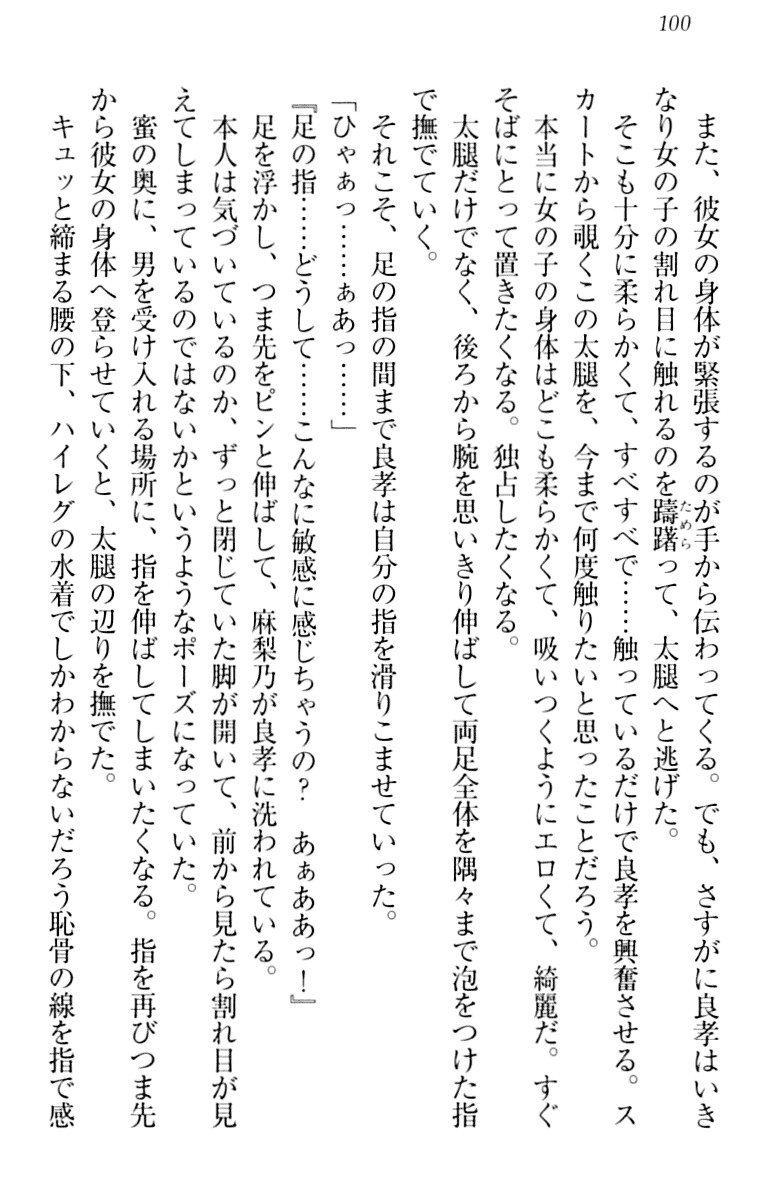 100
また、彼女の身体が緊張するのが手から伝わってくる。でも、さすがに良孝はいき
なり女の子の割れ目に触れるのを躊躇って、太腿へと逃げた。
そこも十分に柔らかくて、すべすべで……触っているだけで良孝を興奮させる。ス
カートから覗くこの太腿を、今まで何度触りたいと思ったことだろう。
本当に女の子の身体はどこも柔らかくて、吸いつくようにエロくて、綺麗だ。すぐ
そばにとって置きたくなる。独占したくなる。
太腿だけでなく、後ろから腕を思いきり伸ばして両足全体を隅々まで泡をつけた指
で撫でていく。
それこそ、足の指の間まで良孝は自分の指を滑りこませていった。
「ひゃぁっ……ぁあっ……」
『足の指……どうして……こんなに敏感に感じちゃうの？　あぁああっ！』
足を浮かし、つま先をピンと伸ばして、麻梨乃が良孝に洗われている。
本人は気づいているのか、ずっと閉じていた脚が開いて、前から見たら割れ目が見
えてしまっているのではないかというようなポーズになっていた。
蜜の奥に、男を受け入れる場所に、指を伸ばしてしまいたくなる。指を再びつま先
から彼女の身体へ登らせていくと、太腿の辺りを撫でた。
キュッと締まる腰の下、ハイレグの水着でしかわからないだろう恥骨の線を指で感